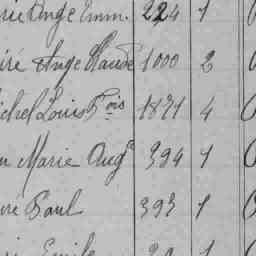 rie Ange Emm. 224 1
iré Ange Claude 1000 2
ichel Louis Fois 1871 4
n Marie Augte 394 1
iré Paul 393 1
Emile 1